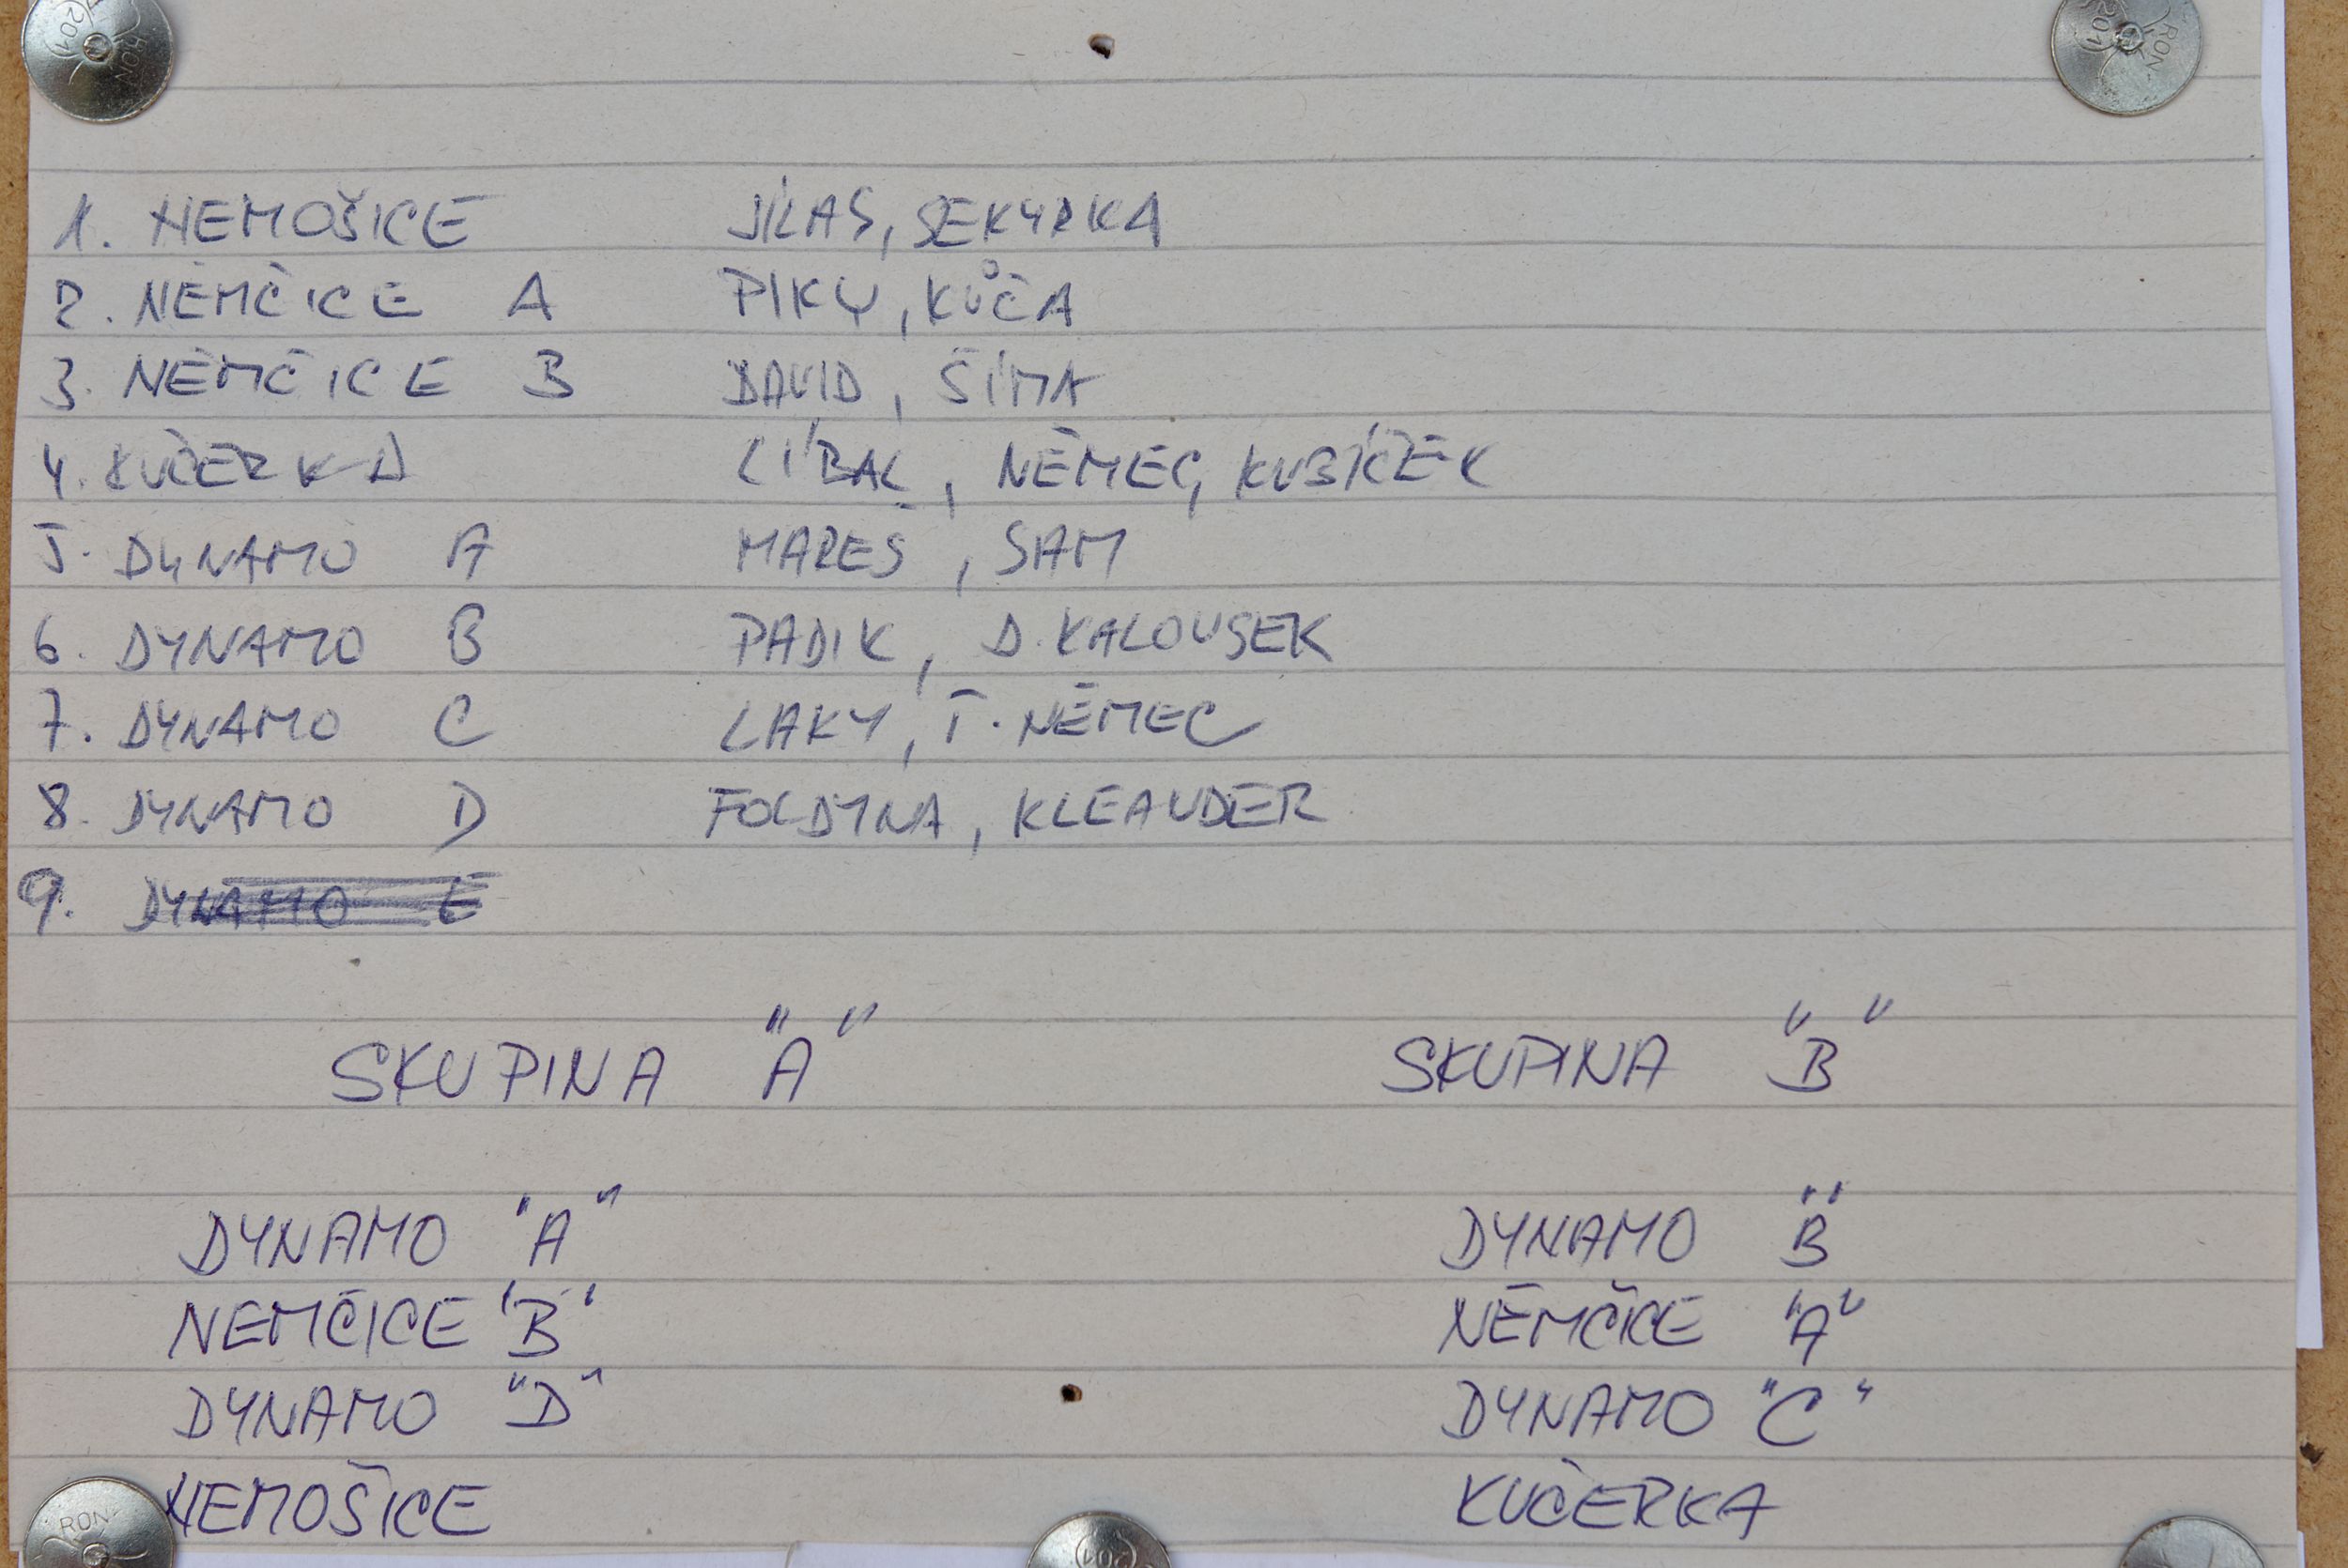 1. NEMOŠICE JÍLAS, SEKYRKA
2. NĚMČICE A PIKY, KŮČA
3. NĚMČICE B DAVID, ŠÍMA
4. KUČERKA LÍBAL, NĚMEC, KUBÍČEK
5. DYNAMO A MAREŠ, SAM
6. DYNAMO B PADIK, D. KALOUSEK
7. DYNAMO C LAKY, T. NĚMEC
8. DYNAMO D FOLDYNA, KLEANDER
9. DYNAMO E
SKUPINA "A" SKUPINA "B"
DYNAMO "A" DYNAMO "B"
NĚMČICE "B" NĚMČICE "A"
DYNAMO "D" DYNAMO "C"
NEMOŠICE KUČERKA
RON